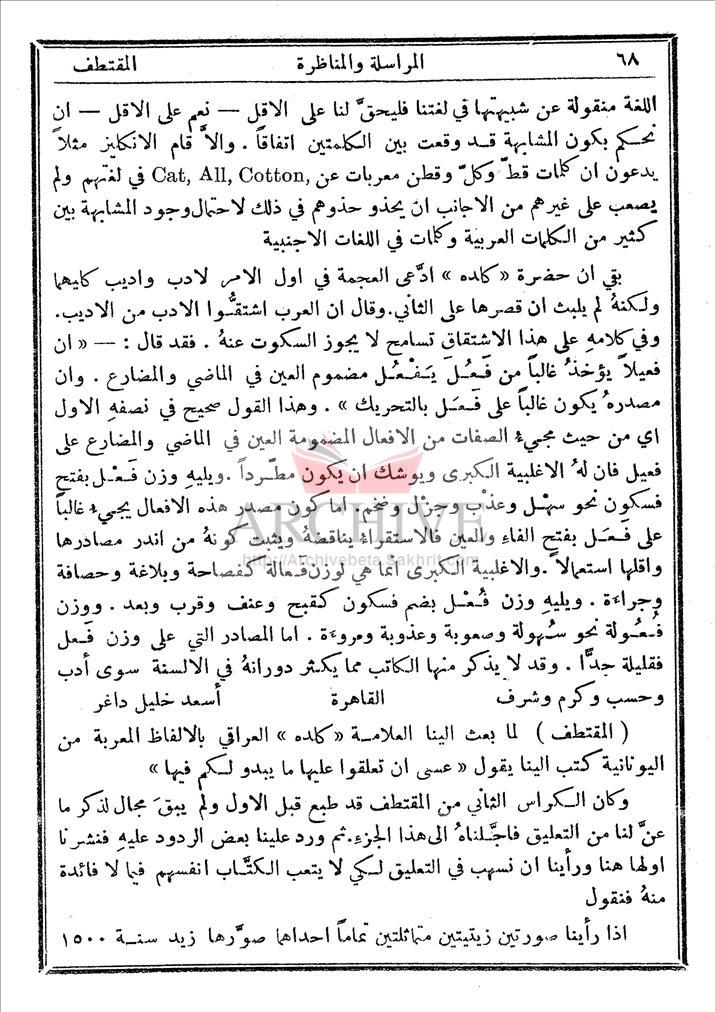 ٦٨ المراسلة والمناظرة المقتطف
اللغة منقولة عن شبيهتها في لغتنا فليحقَّ لنا على الاقل — نعم على الاقل — ان
نحكم بكون المشابهة قد وقعت بين الكلمتين اتفاقاً . والاَّ قام الانكليز مثلاً
يدعون ان كلمات قطّ وكلّ وقطن معربات عن Cat, All, Cotton, في لغتهم ولم
يصعب على غيرهم من الاجانب ان يحذو حذوهم في ذلك لاحتمال وجود المشابهة بين
كثير من الكلمات العربية وكلمات في اللغات الاجنبية
بقي ان حضرة « كلده » ادَّعى العجمة في اول الامر لادب واديب كليهما
ولكنهُ لم يلبث ان قصرها على الثاني. وقال ان العرب اشتقُّوا الادب من الاديب.
وفي كلامهِ على هذا الاشتقاق تسامح لا يجوز السكوت عنهُ . فقد قال : — « ان
فعيلاً يؤخذُ غالباً من فَعُلَ يَفْعُل مضموم العين في الماضي والمضارع . وان
مصدرهُ يكون غالباً على فَعَل بالتحريك » . وهذا القول صحيح في نصفهِ الاول
اي من حيث مجيءُ الصفات من الافعال المضمومة العين في الماضي والمضارع على
فعيل فان لهُ الاغلبية الكبرى ويوشك ان يكون مطَّرداً . ويليهِ وزن فَعْل بفتح
فسكون نحو سهْل وعذْب وجزْل وضخم. اما كون مصدر هذه الافعال يجيءُ غالباً
على فَعَل بفتح الفاءِ والعين فالاستقراءُ يناقضهُ ويثبت كونهُ من اندر مصادرها
واقلها استعمالاً . والاغلبية الكبرى انما هي لوزن فَعالة كفصاحة وبلاغة وحصافة
وجراءة . ويليهِ وزن فُعْل بضم فسكون كقبح وعنف وقرب وبعد . ووزن
فُعُولة نحو سُهولة وصعوبة وعذوبة ومروءة . اما المصادر التي على وزن فَعل
فقليلة جدًّا . وقد لا يذكر منها الكاتب مما يكثر دورانهُ في الالسنة سوى أدب
وحسب وكرم وشرف القاهرة أسعد خليل داغر
( المقتطف ) لما بعث الينا العلامة « كلده » العراقي بالالفاظ المعربة من
اليونانية كتب الينا يقول « عسى ان تعلقوا عليها ما يبدو لكم فيها »
وكان الكراس الثاني من المقتطف قد طبع قبل الاول ولم يبقَ مجال لذكر ما
عنَّ لنا من التعليق فاجَّلناهُ الى هذا الجزءِ. ثم ورد علينا بعض الردود عليهِ فنشرنا
اولها هنا ورأينا ان نسهب في التعليق لكي لا يتعب الكتَّاب انفسهم فيما لا فائدة
منهُ فنقول
اذا رأينا صورتين زيتيتين متماثلتين تماماً احداهما صوَّرها زيد سنة ١٥٠٠
ARCHIVE
http://Archivebeta.Sakhrit.com